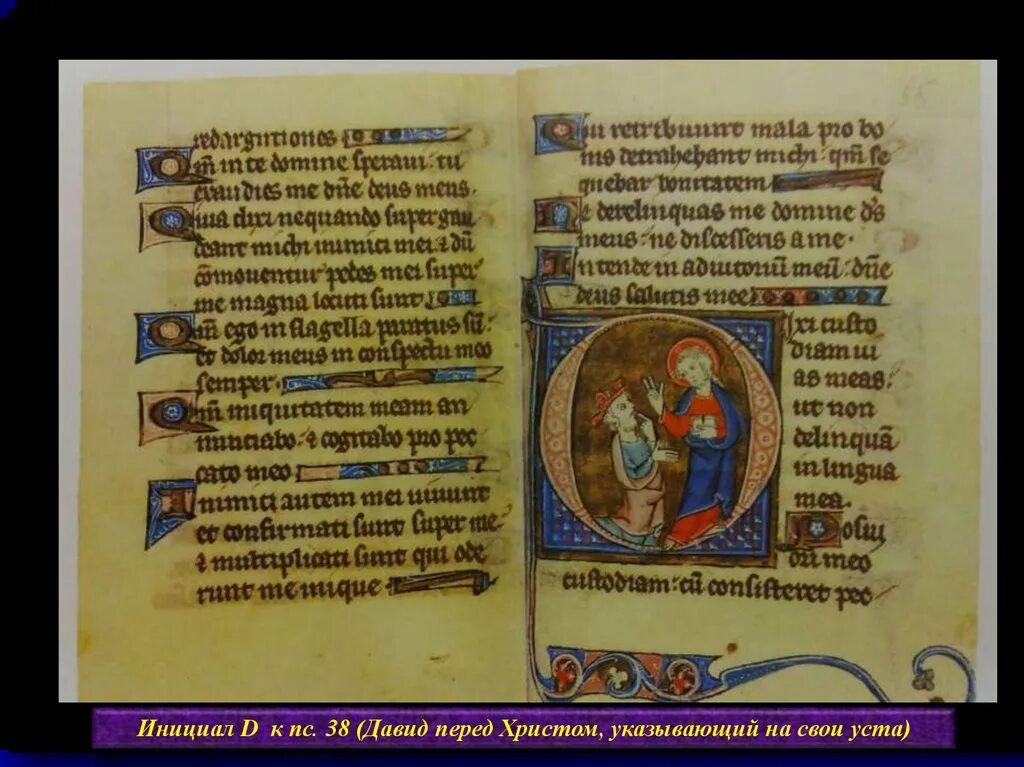 redargutiones
Qm̄ in te domine speraui: tu
exaudies me dn̄e deus meus.
Quia dixi nequando supergau
deant michi inimici mei: & dū
cōmouentur pedes mei super
me magna locuti sunt
Qm̄ ego in flagella paratus sū:
et dolor meus in conspectu meo
semper.
Qm̄ iniquitatem meam an
nunciabo: & cogitabo pro pec
cato meo
Inimici autem mei uiuunt
et confirmati sunt super me:
& multiplicati sunt qui ode
runt me inique
Qui retribuunt mala pro bo
nis detrahebant michi: qm̄ se
quebar bonitatem
Ne derelinquas me domine ds̄
meus: ne discesseris a me.
Intende in adiutoriū meū: dn̄e
deus salutis mee
Dixi custo
diam ui
as meas:
ut non
delinquā
in lingua
mea.
Posui
ori meo
custodiam: cū consisteret pec
Инициал D к пс. 38 (Давид перед Христом, указывающий на свои уста)